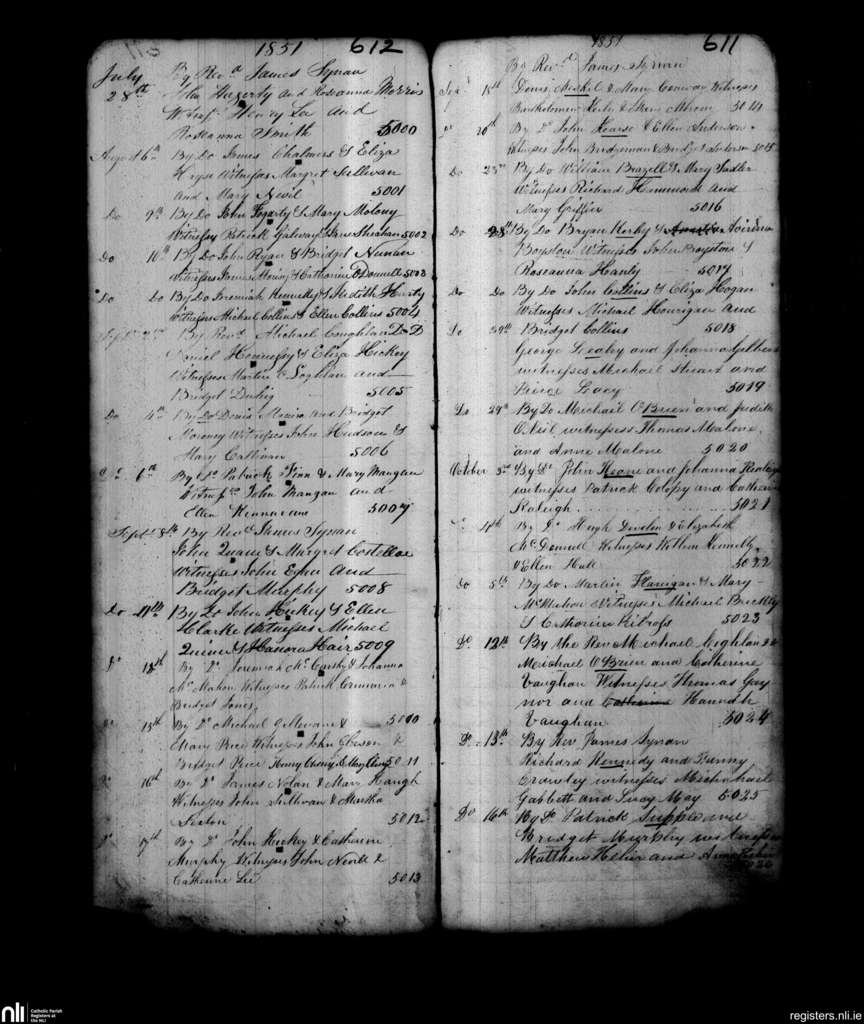 1851 612
July By Revd James Synan
28th John Hagerty and Roseanna Morris
Witnfs Henry Lee and
Roseanna Smith 5000
Augt 6th By Do James Chalmers & Eliza
Witnefses Margret Sullivan
and Mary Nevil 5001
Do 9th By Do John Fogarty & Mary Molony
Witnefses Patrick Galway & Jane Strahan 5002
Do 10th By Do John Ryan & Bridget Nunan
Witnefses James & Catharine O'Donnell 5003
Do Do By Do Jeremiah Kennelly & Judith
Witnefses Michael Collins & Ellen Collins 5004
By Revd Michael Coughlan D.D
Daniel Hennefsy & Eliza Hickey
Witnefses Martin O'Loghlan and
Bridget Duhig 5005
Do 4th By Do Denis and Bridget
Moroney Witnefses John Hudson &
Mary Callinan 5006
6th By Do Patrick Finn & Mary Mangan
Witnfses John Mangan and
Ellen 5007
Sept 8th By Revd James Synan
John Quain & Margret Costelloe
Witnefses John Egan and
Bridget Murphy 5008
Do 11th By Do John Hickey & Ellen
Clarke Witnefses Michael
Quinn & Hanora Hair 5009
Do 13th By Do Jeremiah McCarthy & Johanna
McMahon Witnefses Patrick &
Bridget Jones
Do 15th By Do Michael & 5010
Mary Price Witnefses John &
Bridget Price 5011
Do 16th By Do James Nolan & Mary Haugh
Witnefses John Sullivan & Martha
Sexton 5012
Do 17th By Do John Hickey & Catherine
Murphy Witnefses John Nevill &
Catherine Lee 5013
1851 611
By Revd James Synan
18th Denis & Mary Conway Witnefses
Bartholomew & 5014
Do 20th By Do John Hearse & Ellen Anderson
Witnefses John Bridgeman & Bridget Anderson 5015
Do 23rd By Do William Brazell & Mary Sadler
Witnefses Richard Himmock and
Mary Griffin 5016
Do 28th By Do Bryan Kerby &
Boyston Witnefses John Boyston &
Roseanna Hanly 5017
Do Do By Do John Collins & Eliza Hogan
Witnefses Michael Hourigan and
Bridget Collins 5018
Do 29th George Leahy and Johanna
witnefses Michael Stuart and
Pierce Leary 5019
Do 29th By Do Michael O'Brien and Judith
O'Neil witnefses Thomas Malone
and Anne Malone 5020
October 3rd By Do John Keane and Johanna
witnefses Patrick Colopy and Catherine
Raleigh 5021
4th By Do Hugh Devlin & Elizabeth
McDonnell Witnefses William Kennelly
& Ellen Hall 5022
Do 5th By Do Martin Flanigan & Mary
McMahon Witnefses Michael Buckley
& Kilrofs 5023
Do 12th By the Rev Michael Coghlan
Michael O'Brien and Catherine
Vaughan Witnefses Thomas Gay
nor and Catherine Hannah
Vaughan 5024
Do 13th By Rev James Synan
Richard Kennedy and Fanny
Crowley witnefses Michahael
Gabbett and Lucy May 5025
Do 16th By Do Patrick Supple and
Bridget Murphy witnefses
Matthew and Anne
5026
nli
Catholic Parish
Registers at
the NLI
registers.nli.ie